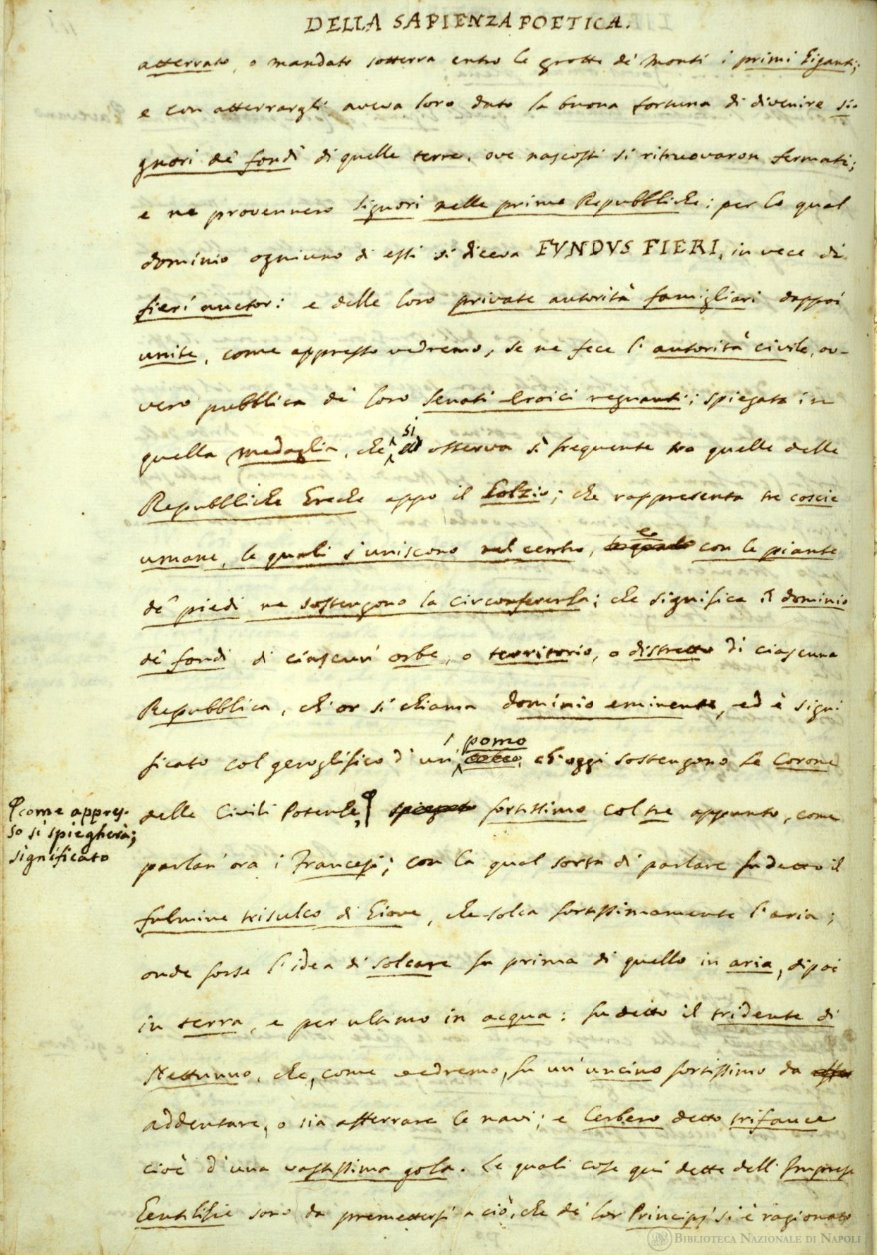 DELLA SAPIENZA POETICA.
atterrato, o mandato sotterra entro le grotte de' Monti i primi Giganti;
e con atterrargli aveva loro dato la buona fortuna di divenire si-
gnori de' fondi di quelle terre, ove nascosti si ritruovaron fermati;
e ne provennero Signori nelle prime Repubbliche: per lo qual
dominio ogniuno di essi si diceva FVNDVS FIERI, in vece di
fieri auctor: e delle loro private autorità famigliari dappoi
unite, come appresso vedremo, se ne fece l'autorità civile, ov-
vero pubblica de' loro Senati Eroici regnanti; spiegata in
quella medaglia, che si osserva sì frequente tra quelle delle
Repubbliche Greche appo il Golzio; che rappresenta tre coscie
umane, le quali s'uniscono nel centro, e con le piante
de' piedi ne sostengono la circonferenza; che significa il dominio
de' fondi di ciascun' orbe, o territorio, o distretto di ciascuna
Repubblica, ch'or si chiama dominio eminente, ed è signi
ficato col geroglifico d'un pomo, ch'oggi sostengono le Corone
delle Civili Potenze, fortissimo col tre appunto, come
come appres-
so si spiegherà;
significato
parlan' ora i Francesi; con la qual sorta di parlare fu detto il
fulmine trisulco di Giove, che solca fortissimamente l'aria;
onde forse l'idea di solcare fu prima di quello in aria, dipoi
in terra, e per ultimo in acqua: fu detto il tridente di
Nettunno, che, come vedremo, fu un'uncino fortissimo da
addentare, o sia afferrare le navi; e Cerbero detto trifauce
cioè d'una vastissima gola. Le quali cose qui dette dell'Imprese
Gentilizie sono da premettersi a ciò, che de' lor Principj si è ragionato
BIBLIOTECA NAZIONALE DI NAPOLI